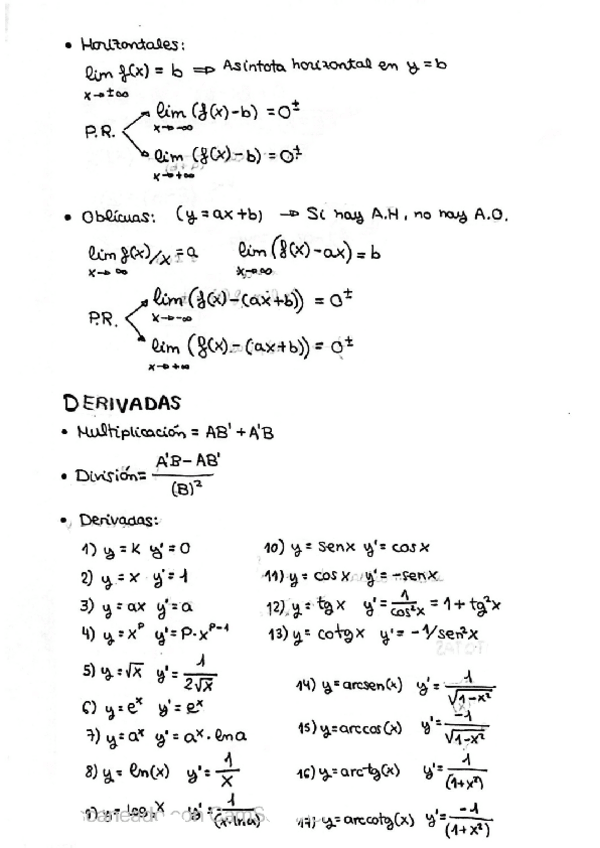 • Horizontales:
lim f(x) = b ⇒ Asíntota horizontal en y = b
x→±∞
P.R.
lim (f(x)-b) = 0±
x→-∞
lim (f(x)-b) = 0±
x→+∞
• Oblícuas: (y = ax+b) → Si hay A.H, no hay A.O.
lim f(x)/x = a lim (f(x)-ax) = b
x→∞ x→∞
P.R.
lim (f(x)-(ax+b)) = 0±
x→-∞
lim (f(x)-(ax+b)) = 0±
x→+∞
DERIVADAS
• Multiplicación = AB' + A'B
• División = A'B - AB' / (B)²
• Derivadas:
1) y = K y' = 0
2) y = x y' = 1
3) y = ax y' = a
4) y = x^p y' = P·x^(P-1)
5) y = √x y' = 1/(2√x)
6) y = e^x y' = e^x
7) y = a^x y' = a^x · ln a
8) y = ln(x) y' = 1/x
9) y = log x y' = 1/(x·ln a)
10) y = sen x y' = cos x
11) y = cos x y' = -sen x
12) y = tg x y' = 1/cos²x = 1 + tg²x
13) y = cotg x y' = -1/sen²x
14) y = arcsen(x) y' = 1/√(1-x²)
15) y = arccos(x) y' = -1/√(1-x²)
16) y = arctg(x) y' = 1/(1+x²)
17) y = arccotg(x) y' = -1/(1+x²)